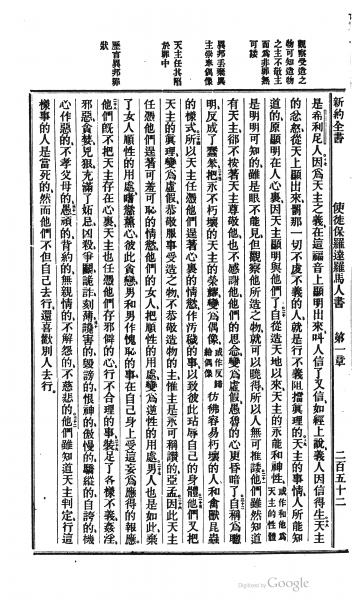 新約全書 使徒保羅達羅馬人書 第一章 二百五十二
觀察受造之
物可知造物
之主不敬主
而爲非罪無
可諉
異邦丟棄眞
主祭奉偶像
天主任其陷
於罪中
歷言異邦罪
狀
是希利尼人因爲天主之義在這福音上顯明出來叫人信了又信如經上說義人因信得生天主
的忿怒從天上顯出來罰那一切不虔不義的人就是行不義阻擋眞理的天主的事情人所能知
道的原顯明在人心裏因天主顯明與他們了自從造天地以來天主的永能和神性或作和他爲天主的性體
是明明可知的雖是眼不能見但觀察他所造之物就可以曉得所以人無可推諉他們雖然知道
有天主卻不按著天主尊敬他也不感謝他他們的思念變爲虛假愚魯的心更昏暗了自稱爲聰
明反成了蠢笨把永不朽壞的天主的榮耀變爲偶像或作反歸給偶像彷彿容易朽壞的人和禽獸昆蟲
的樣式所以天主任憑他們逞著心裏的情慾作汚穢的事以致彼此玷辱自己的身體他們又把
天主的眞理變爲虛假恭敬服事受造之物不恭敬造物的主惟主是永可稱讚的亞孟因此天主
任憑他們逞著可羞可恥的情慾他們的女人把順性的用處變爲逆性的用處男人也是如此棄
了女人順性的用處嗜慾薰心彼此貪戀男和男作愧恥的事在自己身上受這妄爲應得的報應
他們旣不把天主存在心裏天主也任憑他們存邪僻的心行不合理的事裝足了各樣不義姦淫
邪惡貪婪兇狠充滿了妬忌凶殺爭鬭詭詐刻薄讒害的毀謗的恨神的傲慢的驕縱的自誇的機
心作惡的不孝父母的愚頑的背約的無親情的不解怨的不慈悲的他們雖知道天主判定行這
樣事的人是當死的然而他們不但自己去行還喜歡別人去行
Digitized by Google